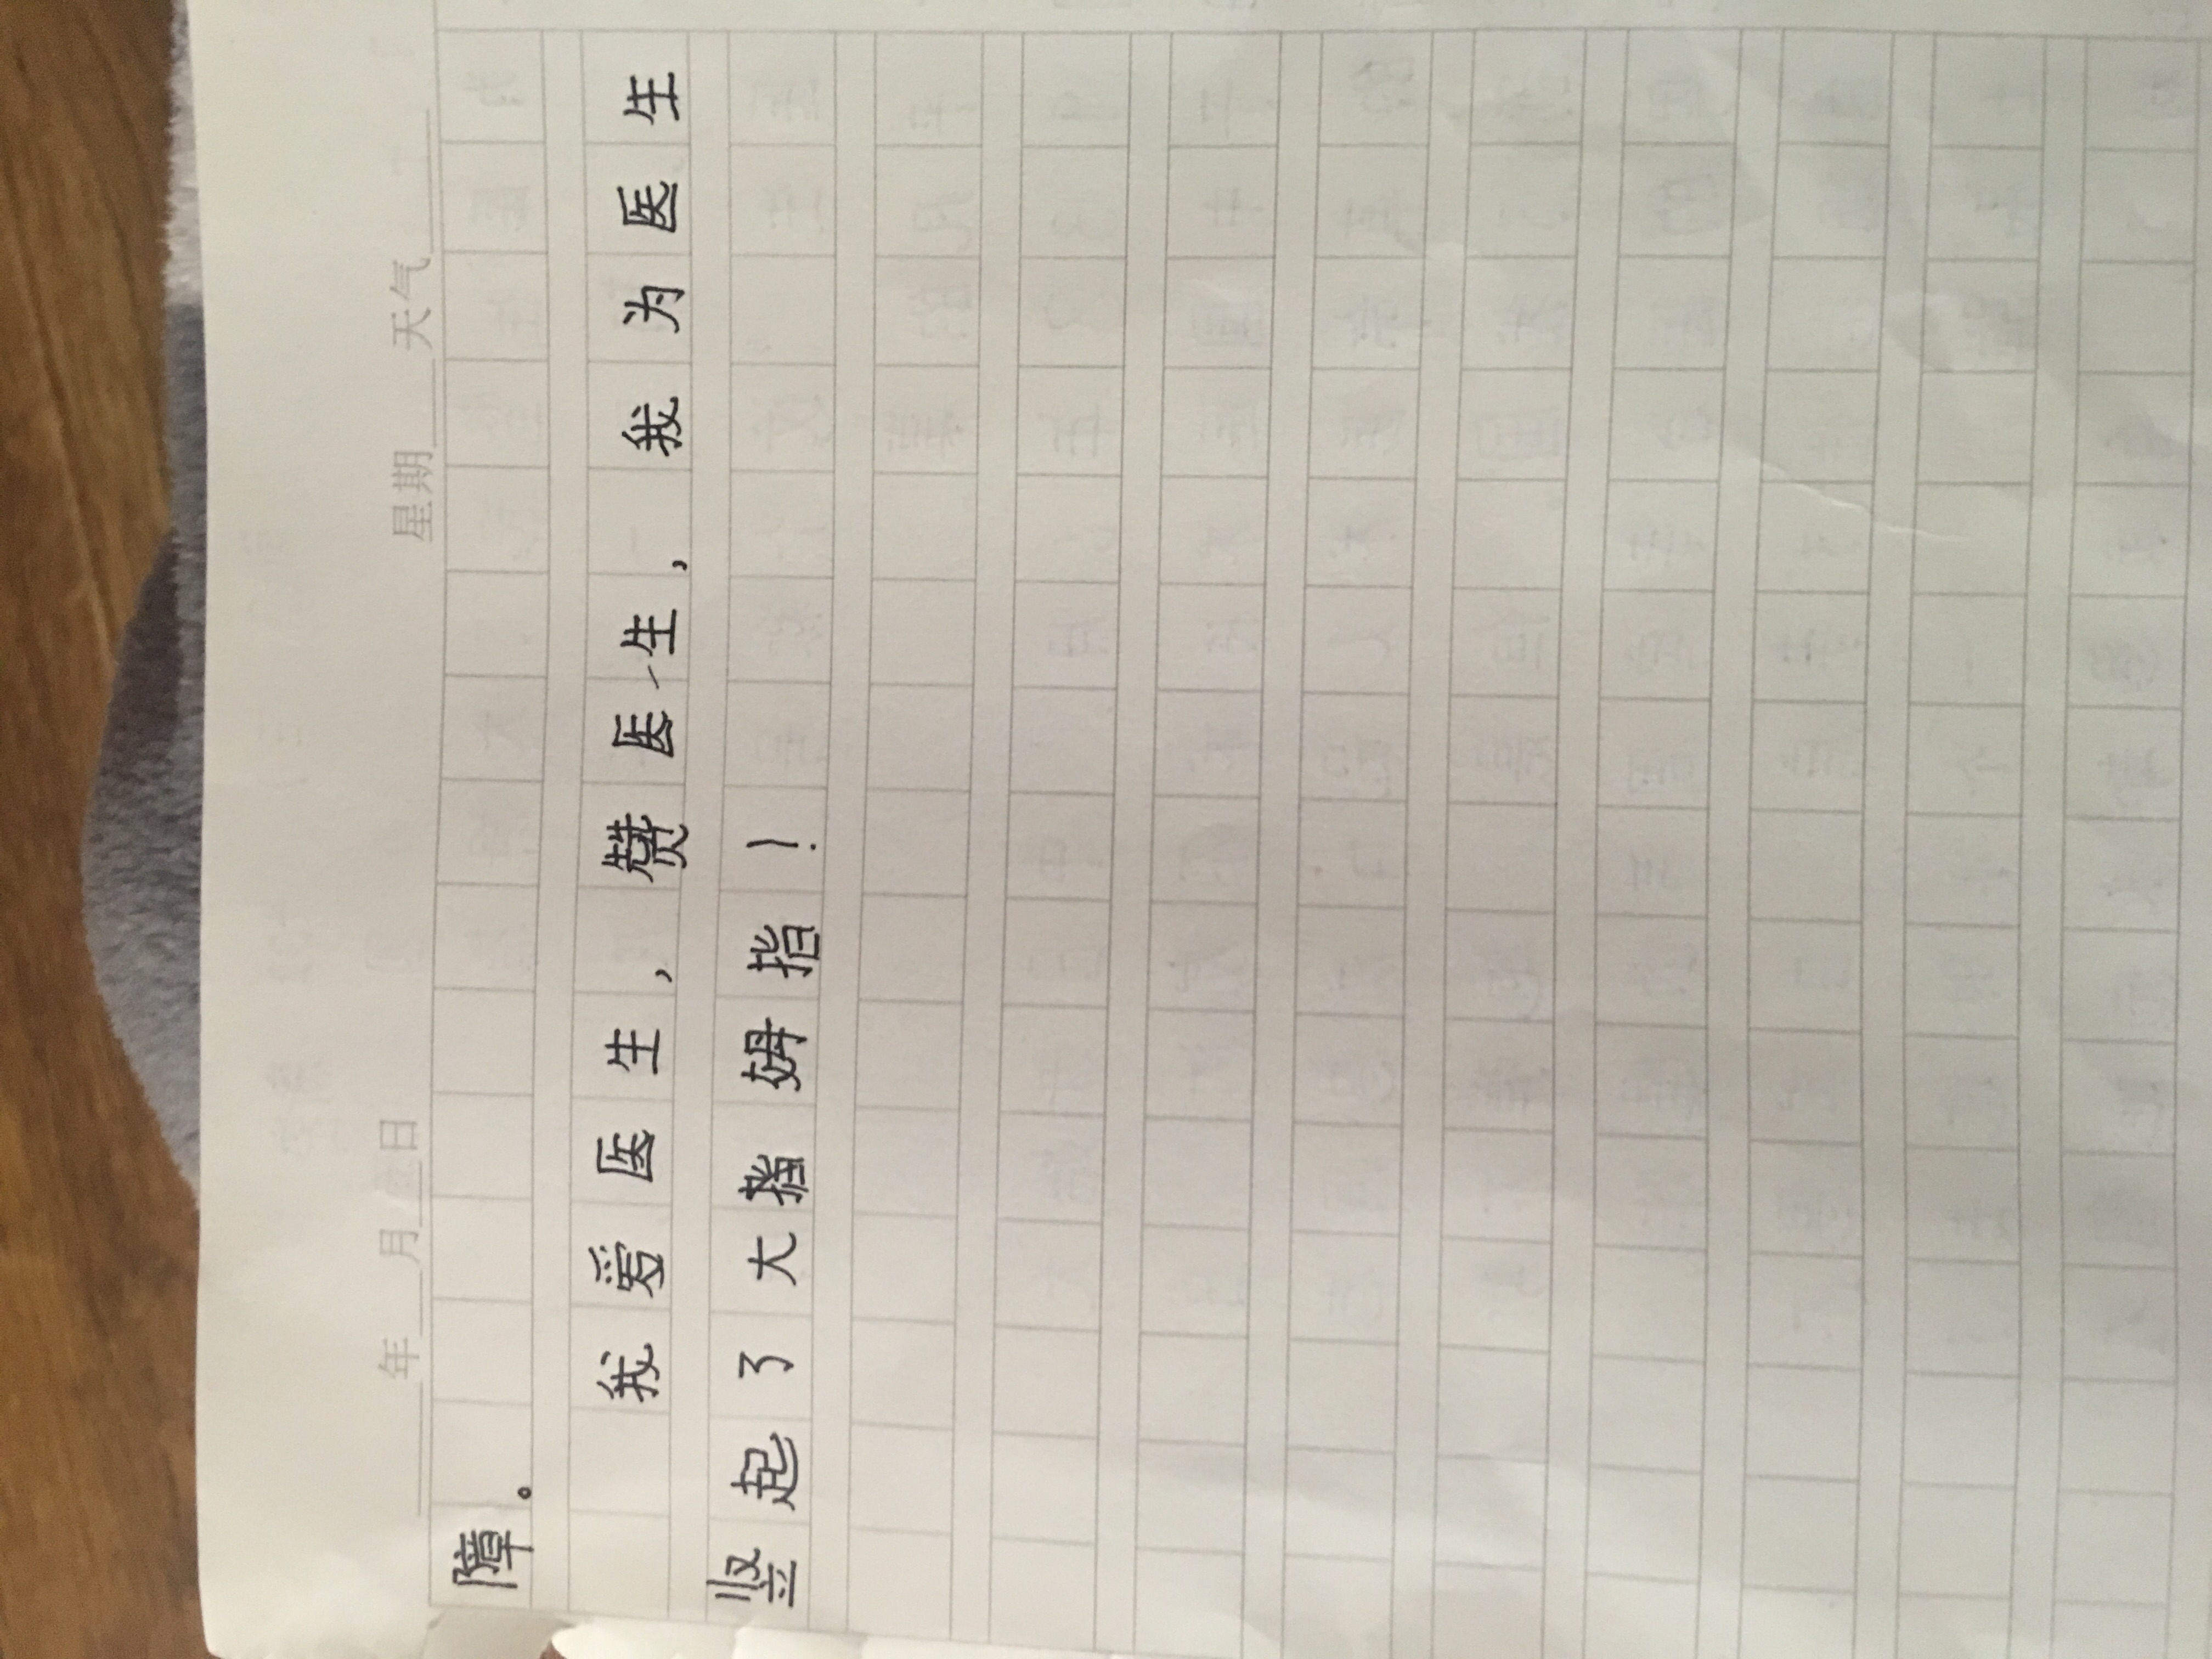 年 月 日 星期 天气
障。
我爱医生，赞医生，我为医生
竖起了大拇指！